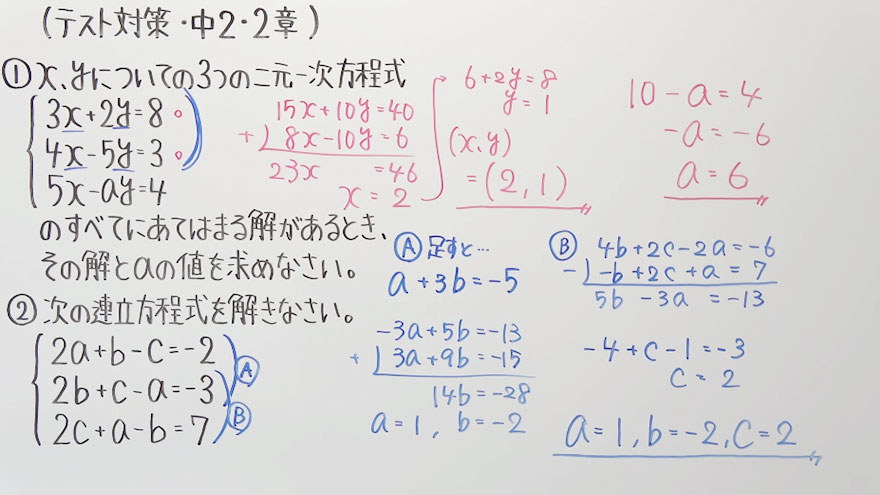 (テスト対策・中2・2章)
① x、yについての3つの二元一次方程式
3x+2y=8
4x-5y=3
5x-ay=4
のすべてにあてはまる解があるとき、
その解とaの値を求めなさい。
15x+10y=40
+) 8x-10y=6
23x =46
x=2
6+2y=8
y=1
(x,y)
=(2,1)
10-a=4
-a=-6
a=6
② 次の連立方程式を解きなさい。
2a+b-c=-2
2b+c-a=-3
2c+a-b=7
Ⓐ
Ⓑ
Ⓐ 足すと…
a+3b=-5
-3a+5b=-13
+) 3a+9b=-15
14b=-28
a=1, b=-2
Ⓑ 4b+2c-2a=-6
-) -b+2c+a=7
5b-3a=-13
-4+c-1=-3
c=2
a=1, b=-2, c=2